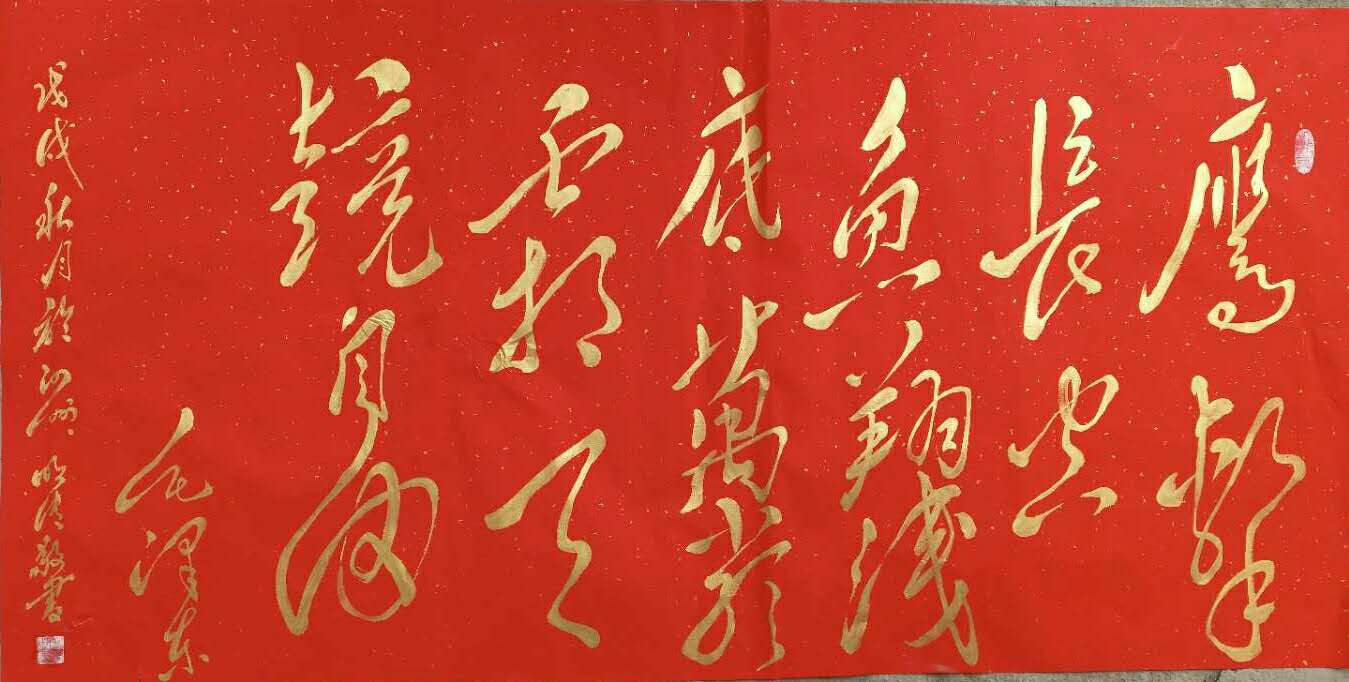 鷹擊
長空
魚翔淺
底萬類
霜天
競自由
毛澤東
戊戌秋月於 敬書